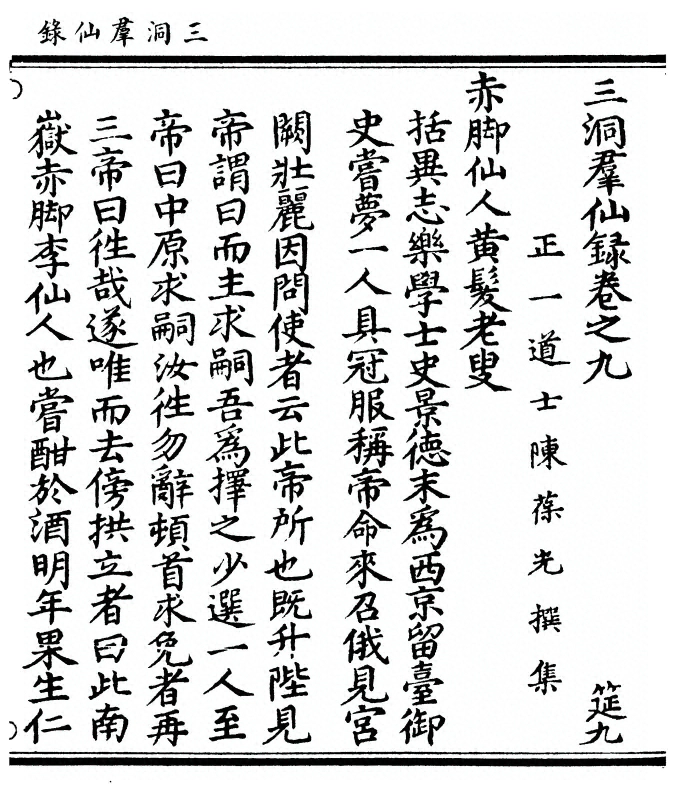 三洞羣仙錄
三洞羣仙録卷之九 筵九
正一道士陳葆光撰集
赤脚仙人黄髮老叟
括異志樂學士史景徳末為西京留臺御
史嘗夢一人具冠服稱帝命來召俄見宮
闕壯麗因問使者云此帝所也既升陛見
帝謂曰而主求嗣吾爲擇之少選一人至
帝曰中原求嗣汝徃勿辭頓首求免者再
三帝曰徃哉遂唯而去傍拱立者曰此南
嶽赤脚李仙人也嘗酣於酒明年果生仁